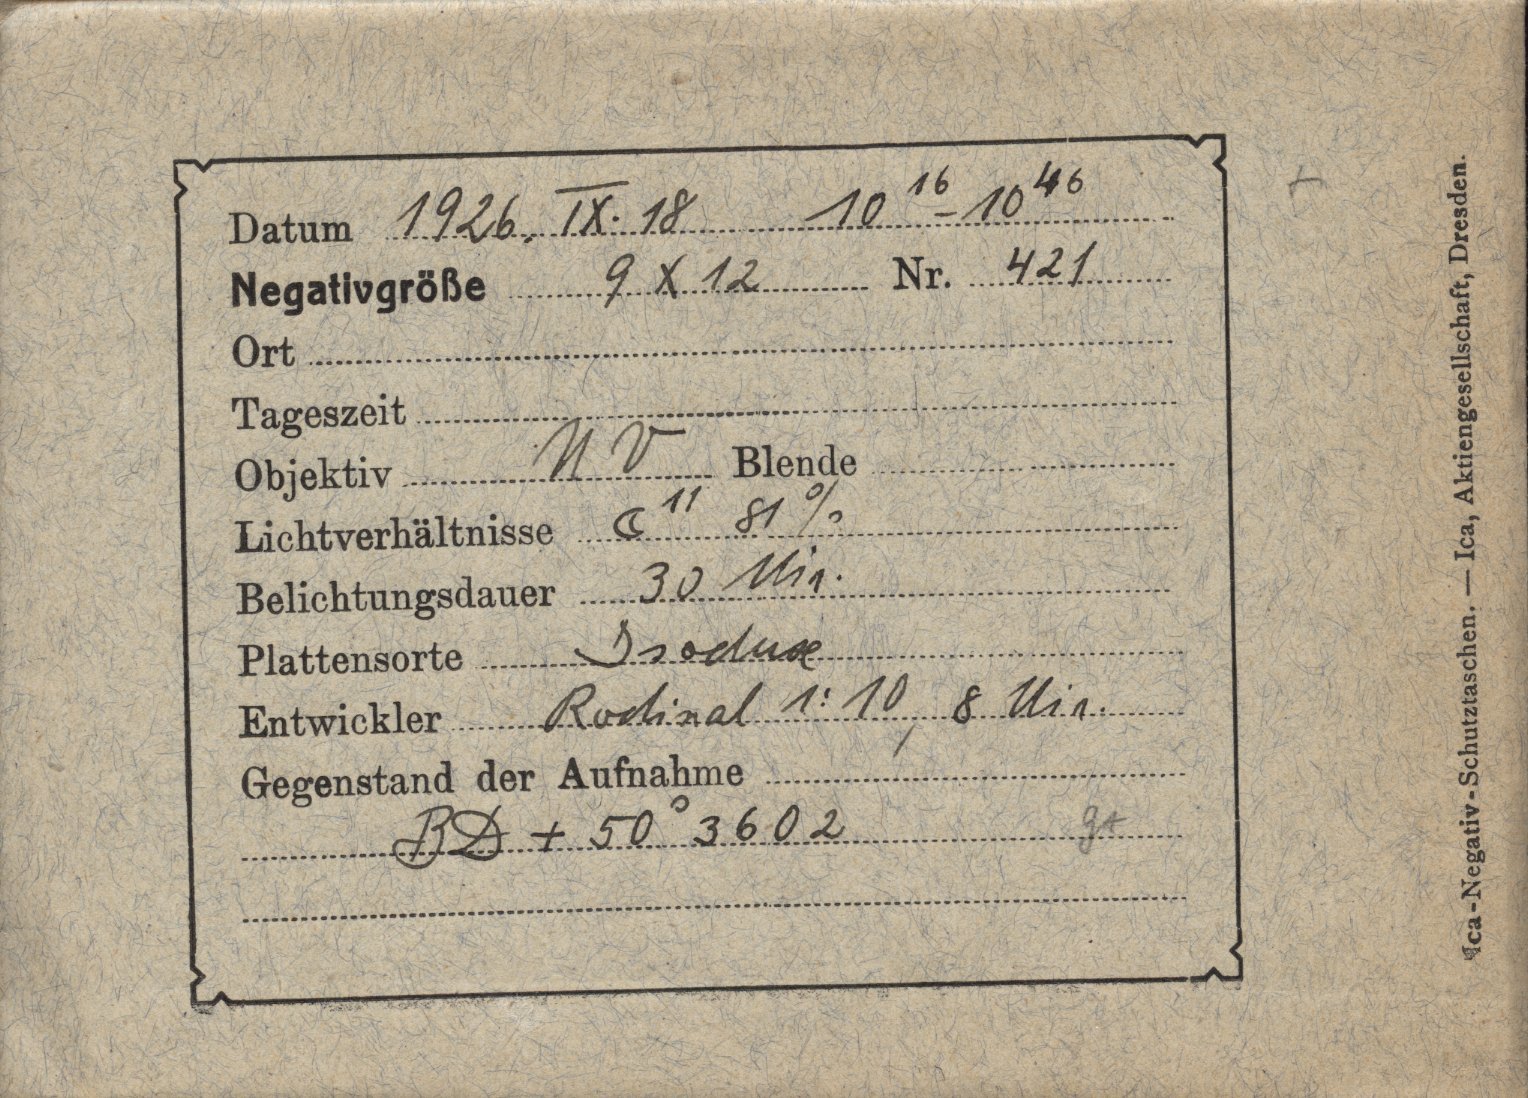 Datum 1926. IX. 18 10 16 - 10 46
Negativgröße 9 X 12 Nr. 421
Ort
Tageszeit
Objektiv UV Blende
Lichtverhältnisse ☾ 11 81%
Belichtungsdauer 30 Min.
Plattensorte Isodux
Entwickler Rodinal 1:10, 8 Min.
Gegenstand der Aufnahme
BD + 50° 3602
Ica-Negativ-Schutztaschen. — Ica, Aktiengesellschaft, Dresden.